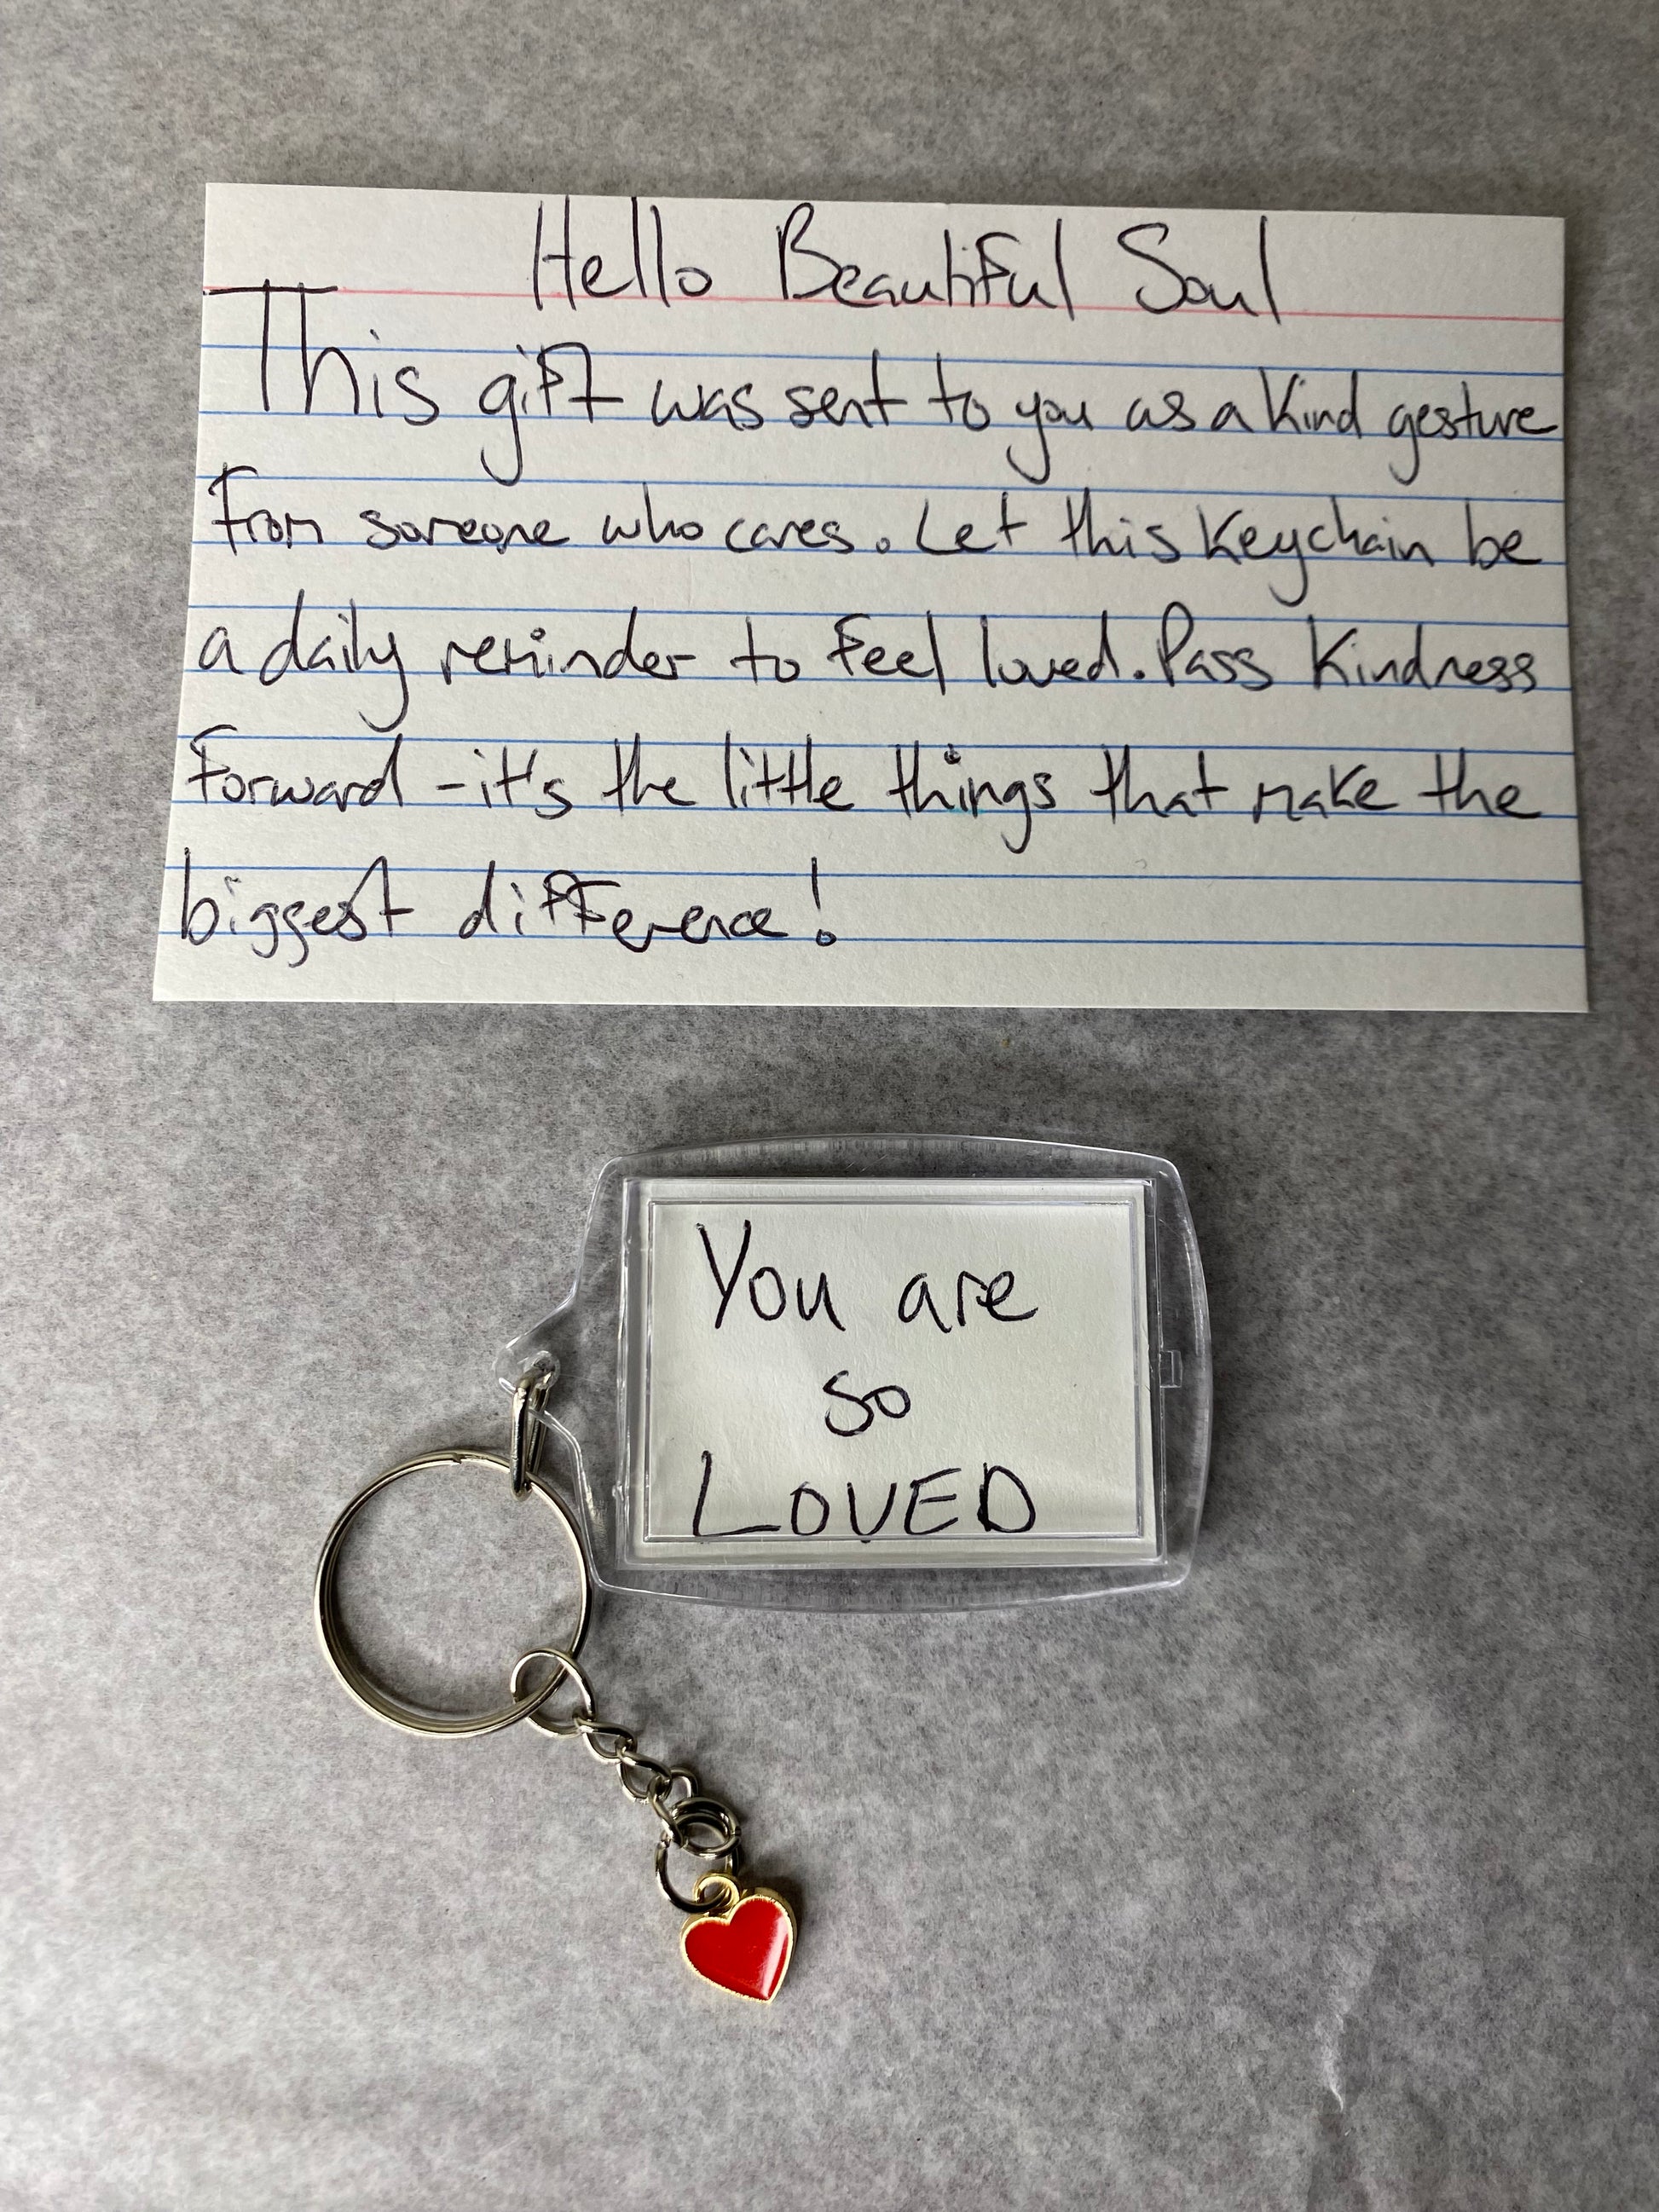 Hello Beautiful Soul
This gift was sent to you as a kind gesture
from someone who cares. Let this keychain be
a daily reminder to feel loved. Pass kindness
forward - it's the little things that make the
biggest difference!
You are
so
LOVED